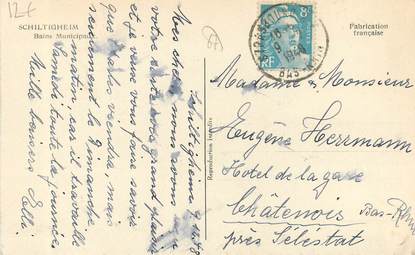 12F
SCHILTIGHEIM
Bains Municipaux
67
Fabrication
française
8F
RF
BAS-RHIN
Schiltigheim
Mes chers, nous avons
votre carte avec grand plaisir
et je veux vous faire savoir
que Charles viendra, mais
seulement le Dimanche
matin car il travaille
Samedi toute la journée.
Mille baisers Elli.
Reproduction interdite
Madame & Monsieur
Eugène Herrmann
Hotel de la gare
Châtenois Bas-Rhin
près Sélestat